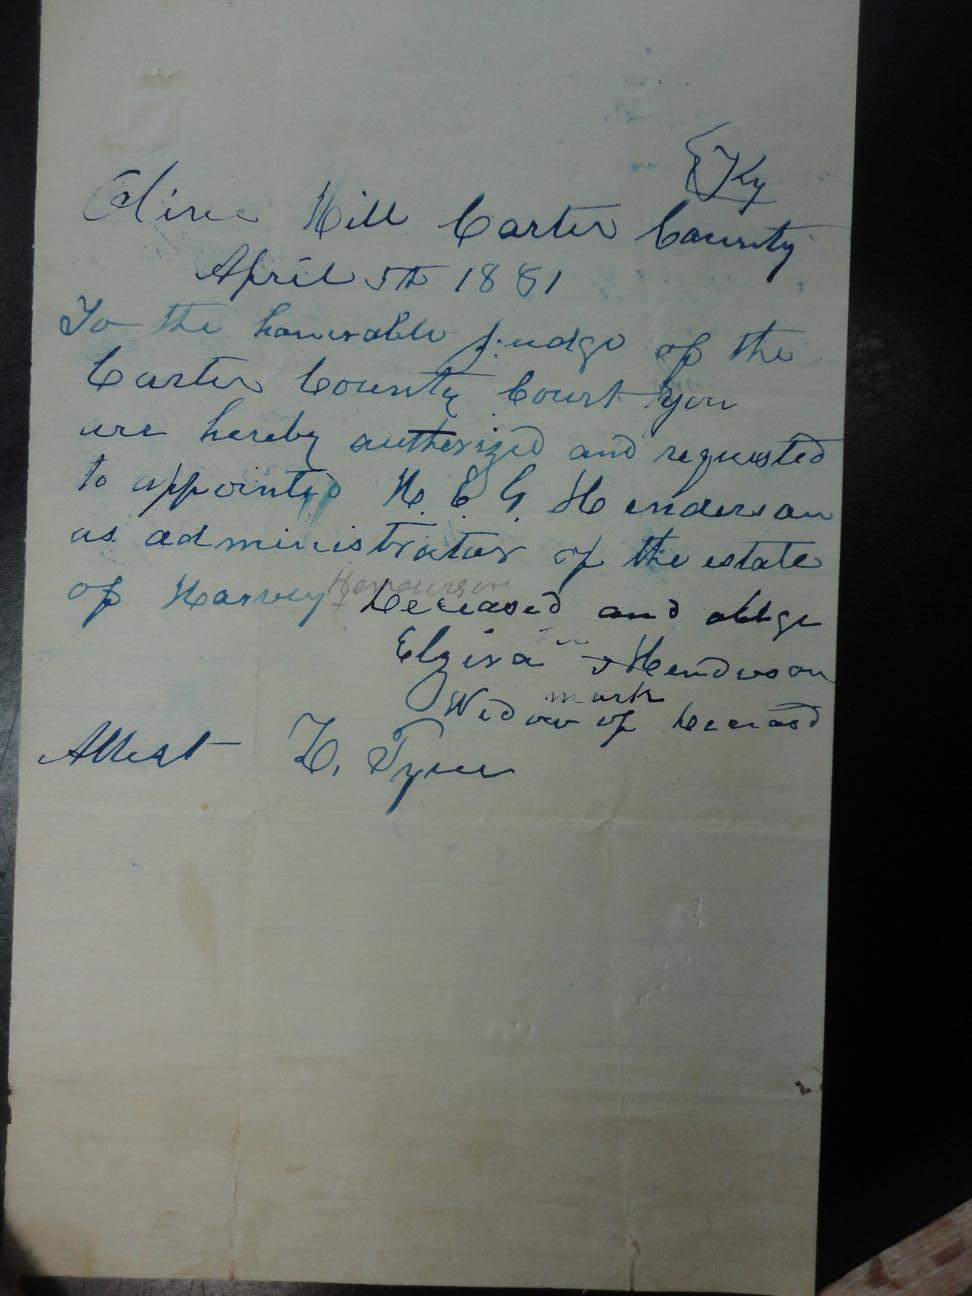 Ky
Olive Hill Carter County
April 5th 1881
To the honorable judge of the
Carter County Court you
are hereby authorized and requested
to appointed H. E. G. Henderson
as administrator of the estate
of Harvey Henderson Deceased and oblige
Elzira x Henderson
mark
Widow of Deceasd
Attest